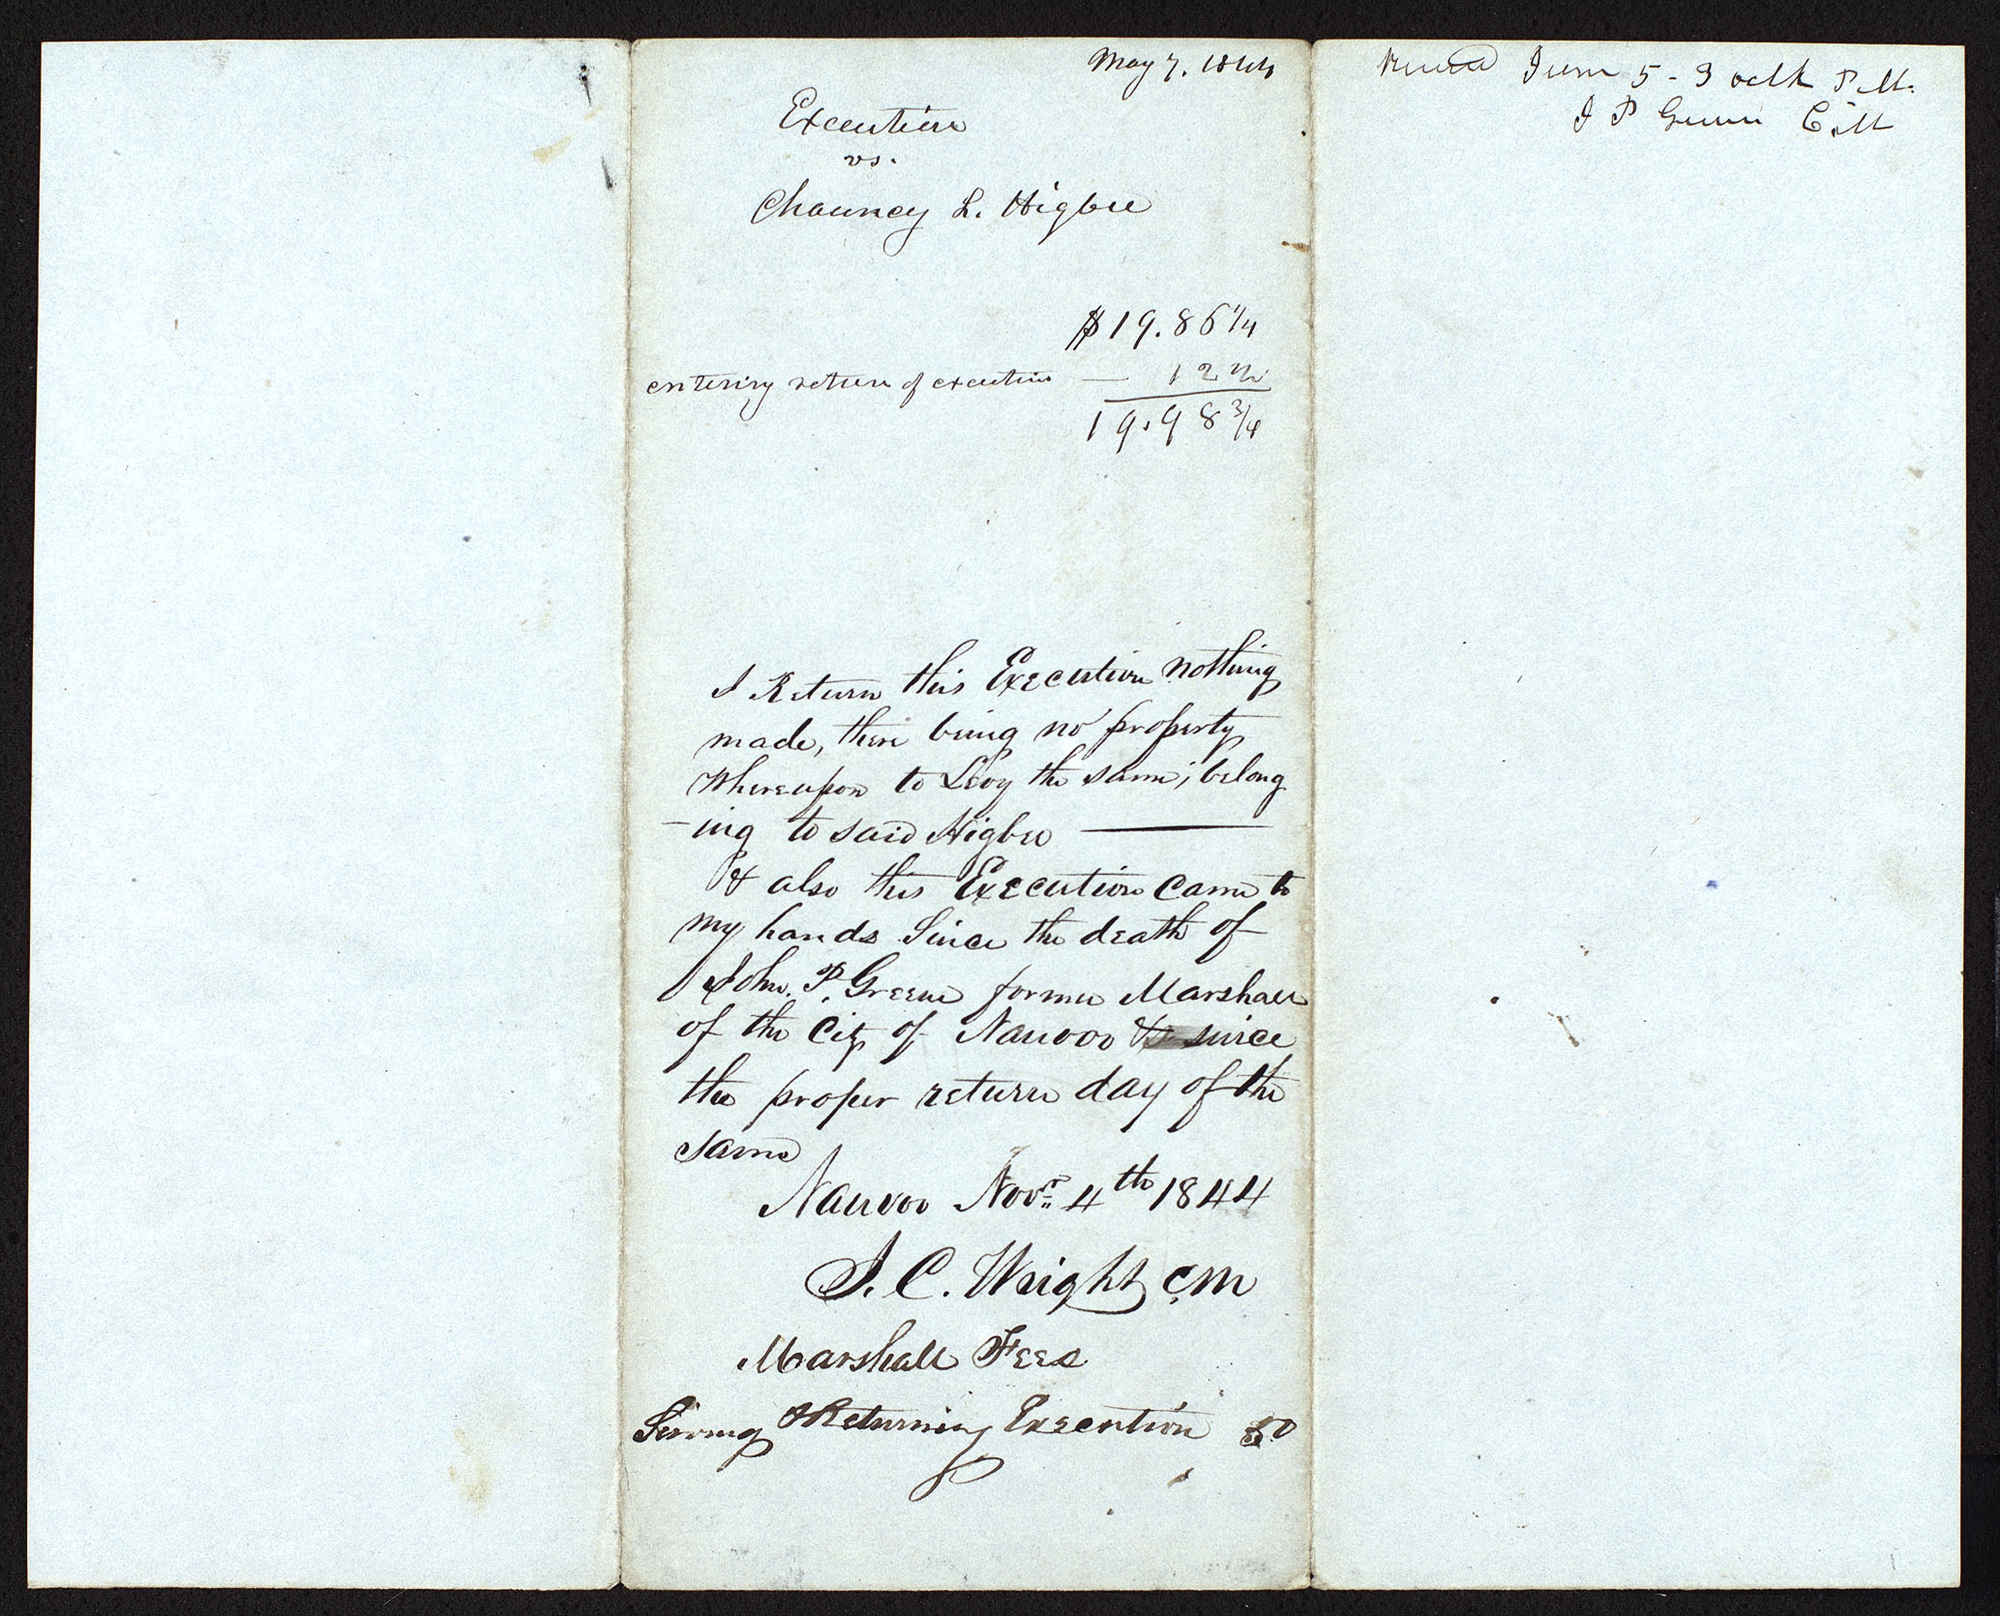 May 7. 1844
Execution
vs.
Chauncy L. Higbee
$19.86 1/4
entering return of execution — 12 1/2
19.98 3/4
I Return this Execution nothing
made, there being no property
Whereupon to Levy the same; belong
-ing to said Higbee ———
& also this Execution Came to
my hands Since the death of
John. P. Greene former Marshall
of the City of Nauvoo & since
the proper return day of the
same
Nauvoo Novr. 4th 1844
J. C. Wright C.M
Marshall Fees
Serving & Returning Execution 50
June 5 - 3 oclk P.M.
J P Green C.M